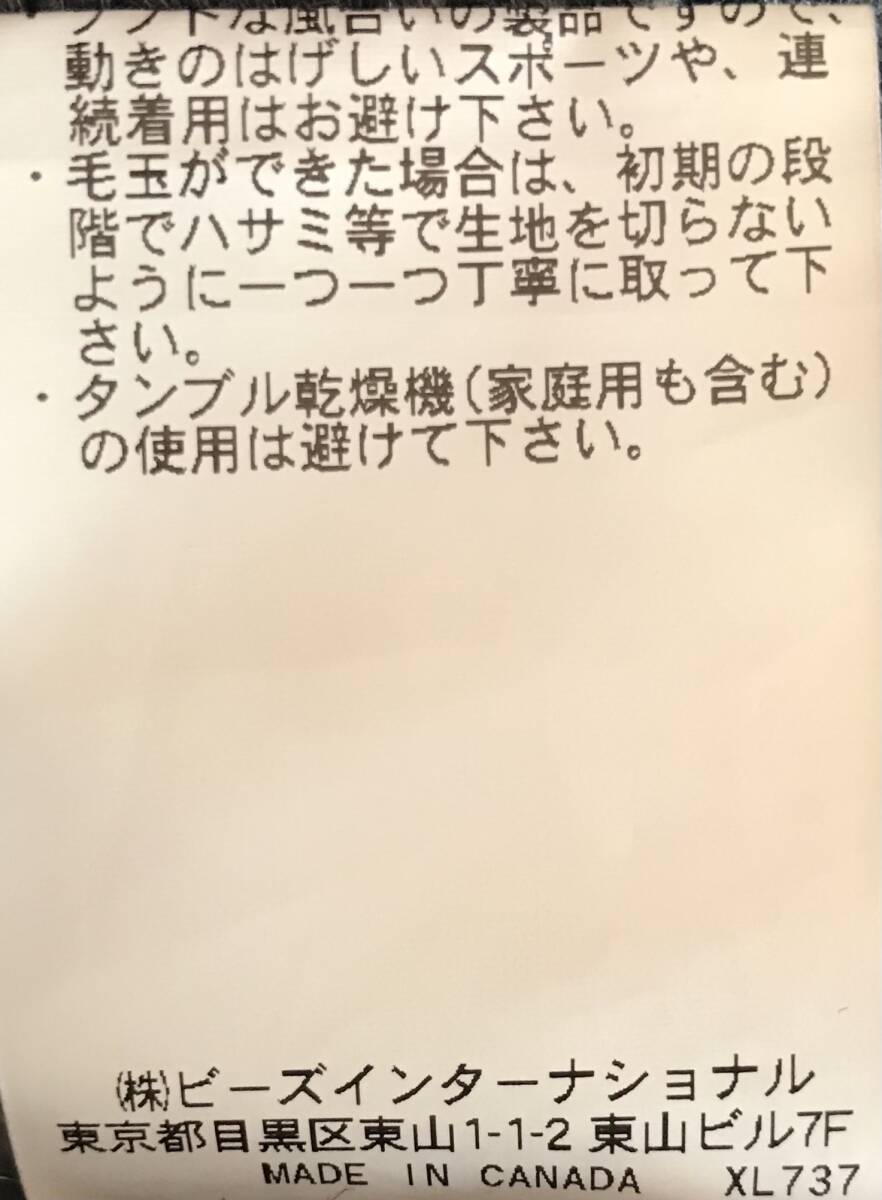 ・ソフトな風合いの製品ですので、
動きのはげしいスポーツや、連
続着用はお避け下さい。
・毛玉ができた場合は、初期の段
階でハサミ等で生地を切らない
ように一つ一つ丁寧に取って下
さい。
・タンブル乾燥機(家庭用も含む)
の使用は避けて下さい。
㈱ビーズインターナショナル
東京都目黒区東山1-1-2 東山ビル7F
MADE IN CANADA XL737